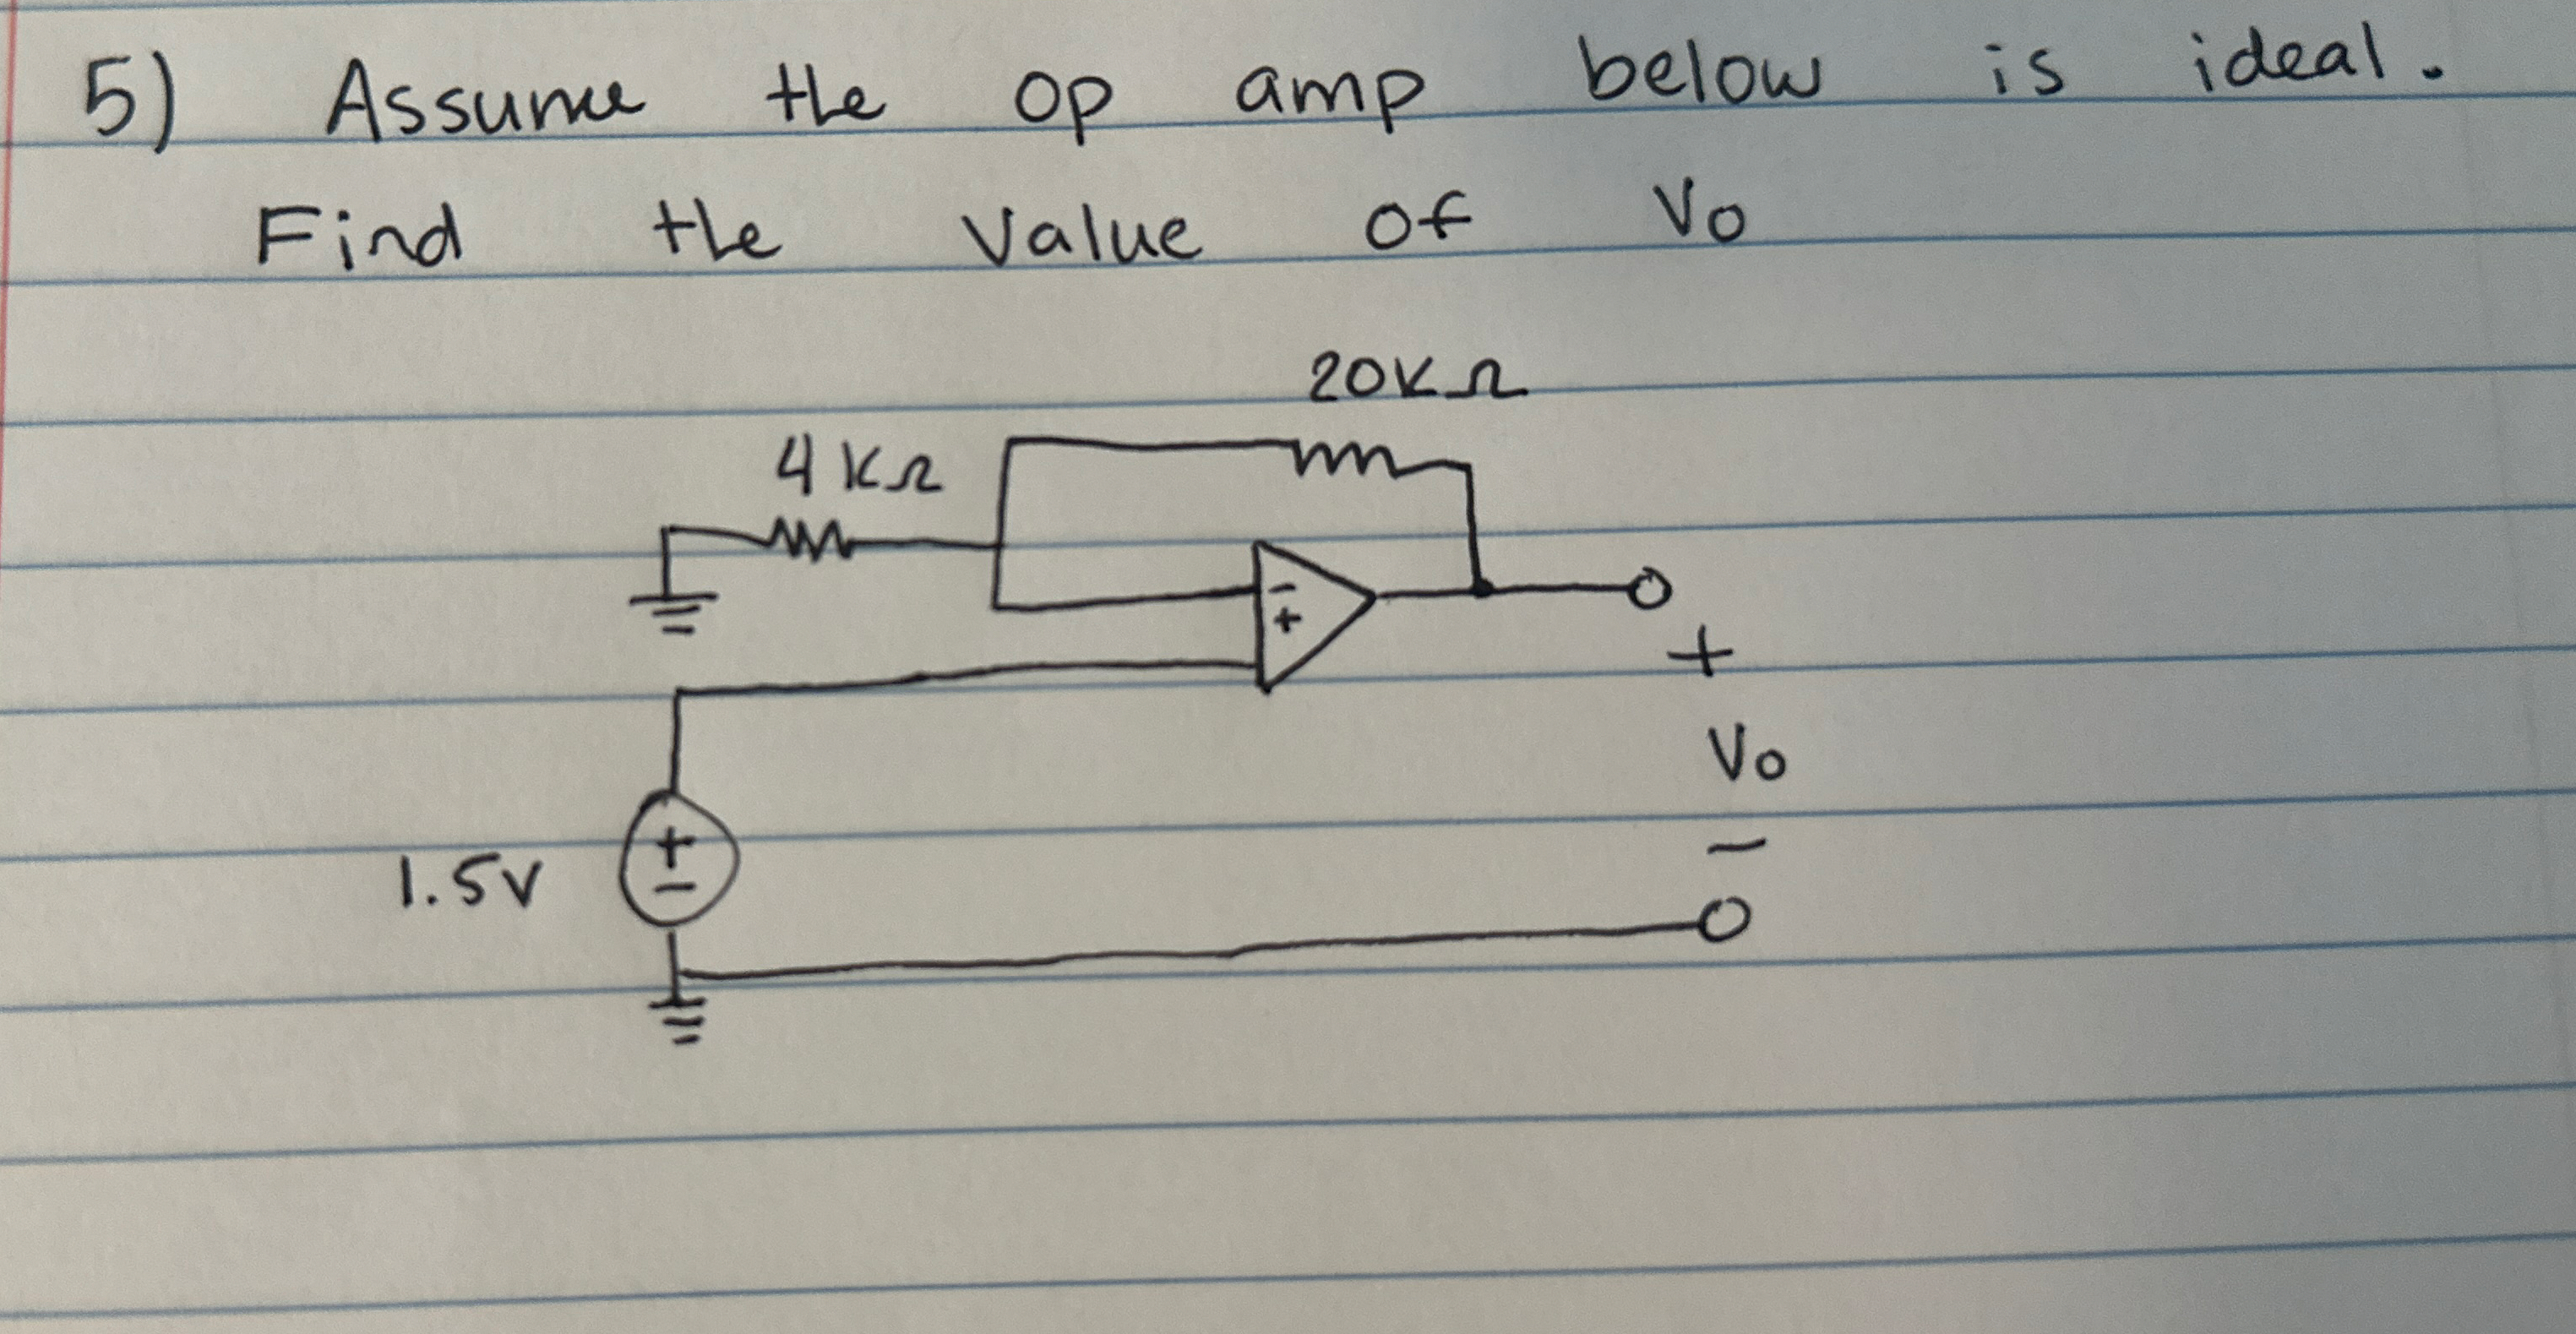 5) Assume the op amp below is ideal.
Find the value of Vo
20KΩ
4KΩ
-
+
+
Vo
-
1.5V
+
-